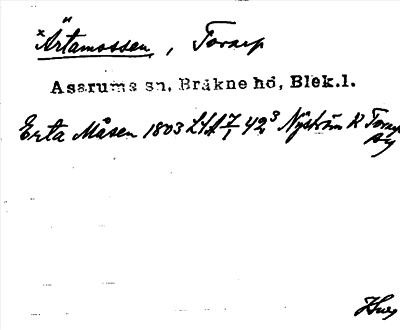 ×Ärtamossen, Tornep
Asarums sn, Bräkne hd, Blek.l.
Erta Måsen 1803 LSA 7/1 42³ Nyström K Tornep
Ay